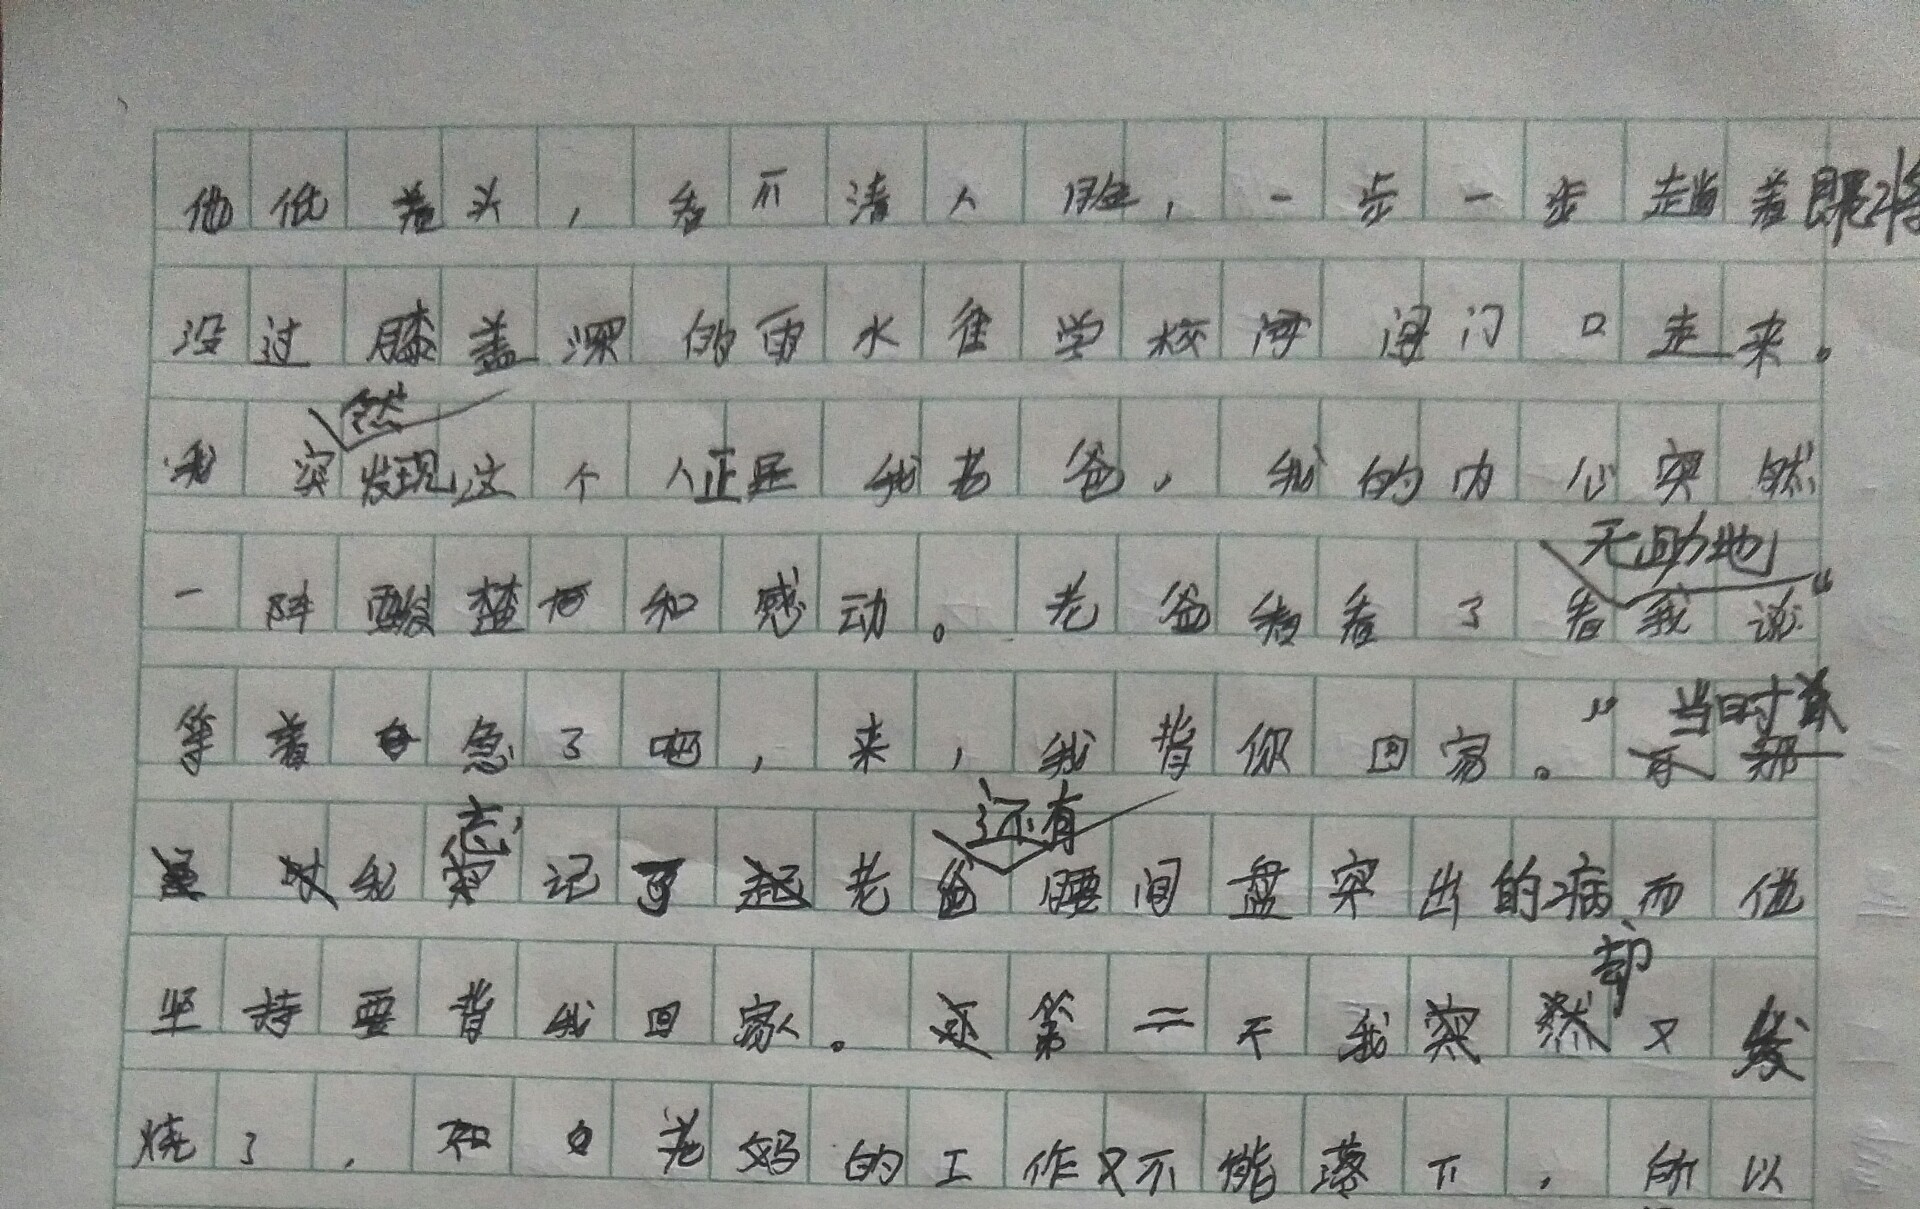 他低着头，看不清人脸，一步一步趟着即将
没过膝盖深的雨水往学校门口走来。
我突然发现这个人正是我老爸，我的内心突然
一阵酸楚和感动。老爸看了看无助地我说“
等着急了吧，来，我背你回家。”当时
我忘记老爸还有腰间盘突出的病而他
坚持要背我回家。第二天我却又发
烧了，和老妈的工作又不能落下，所以